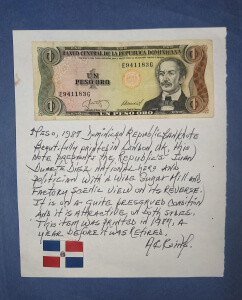 1
1
BANCO CENTRAL DE LA REPUBLICA DOMINICANA
E941183G
E941183G
UN
PESO ORO
1
UN PESO ORO
1
1 PESO, 1987 DOMINICAN REPUBLIC BANKNOTE
BEAUTIFULLY PRINTED IN LONDON, UK. THIS
NOTE PRESENTS THE REPUBLIC'S JUAN
DUARTE DIEZ NATIONAL HERO AND
POLITICIAN WITH A WIDE SUGAR MILL AND
FACTORY SCENIC VIEW ON ITS REVERSE.
IT IS ON A QUITE PRESERVED CONDITION
AND IT IS ATTRACTIVE ON BOTH SIDES.
THIS ITEM WAS PRINTED IN 1987, A
YEAR BEFORE IT WAS RETIRED.